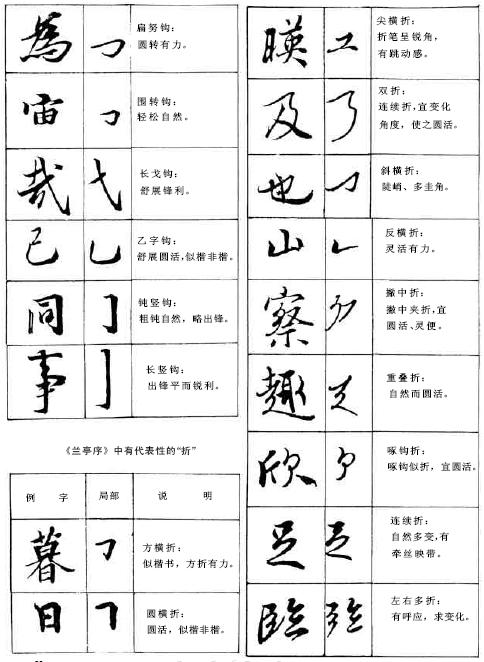 為
扁努钩：
圆转有力。
宙
围转钩：
轻松自然。
哉
长戈钩：
舒展锋利。
已
乙字钩：
舒展圆活，似楷非楷。
同
钝竖钩：
粗钝自然，略出锋。
事
长竖钩：
出锋平而锐利。
《兰亭序》中有代表性的“折”
例 字 局部 说 明
暮
方横折：
似楷书，方折有力。
日
圆横折：
圆活，似楷非楷。
暎
尖横折：
折笔呈锐角，
有跳动感。
及
双折：
连续折，宜变化
角度，使之圆活。
也
斜横折：
陡峭、多圭角。
山
反横折：
灵活有力。
察
撇中折：
撇中夹折，宜
圆活、灵便。
趣
重叠折：
自然而圆活。
欣
啄钩折：
啄钩似折，宜圆活。
足
连续折：
自然多变，有
牵丝映带。
臨
左右多折：
有呼应，求变化。